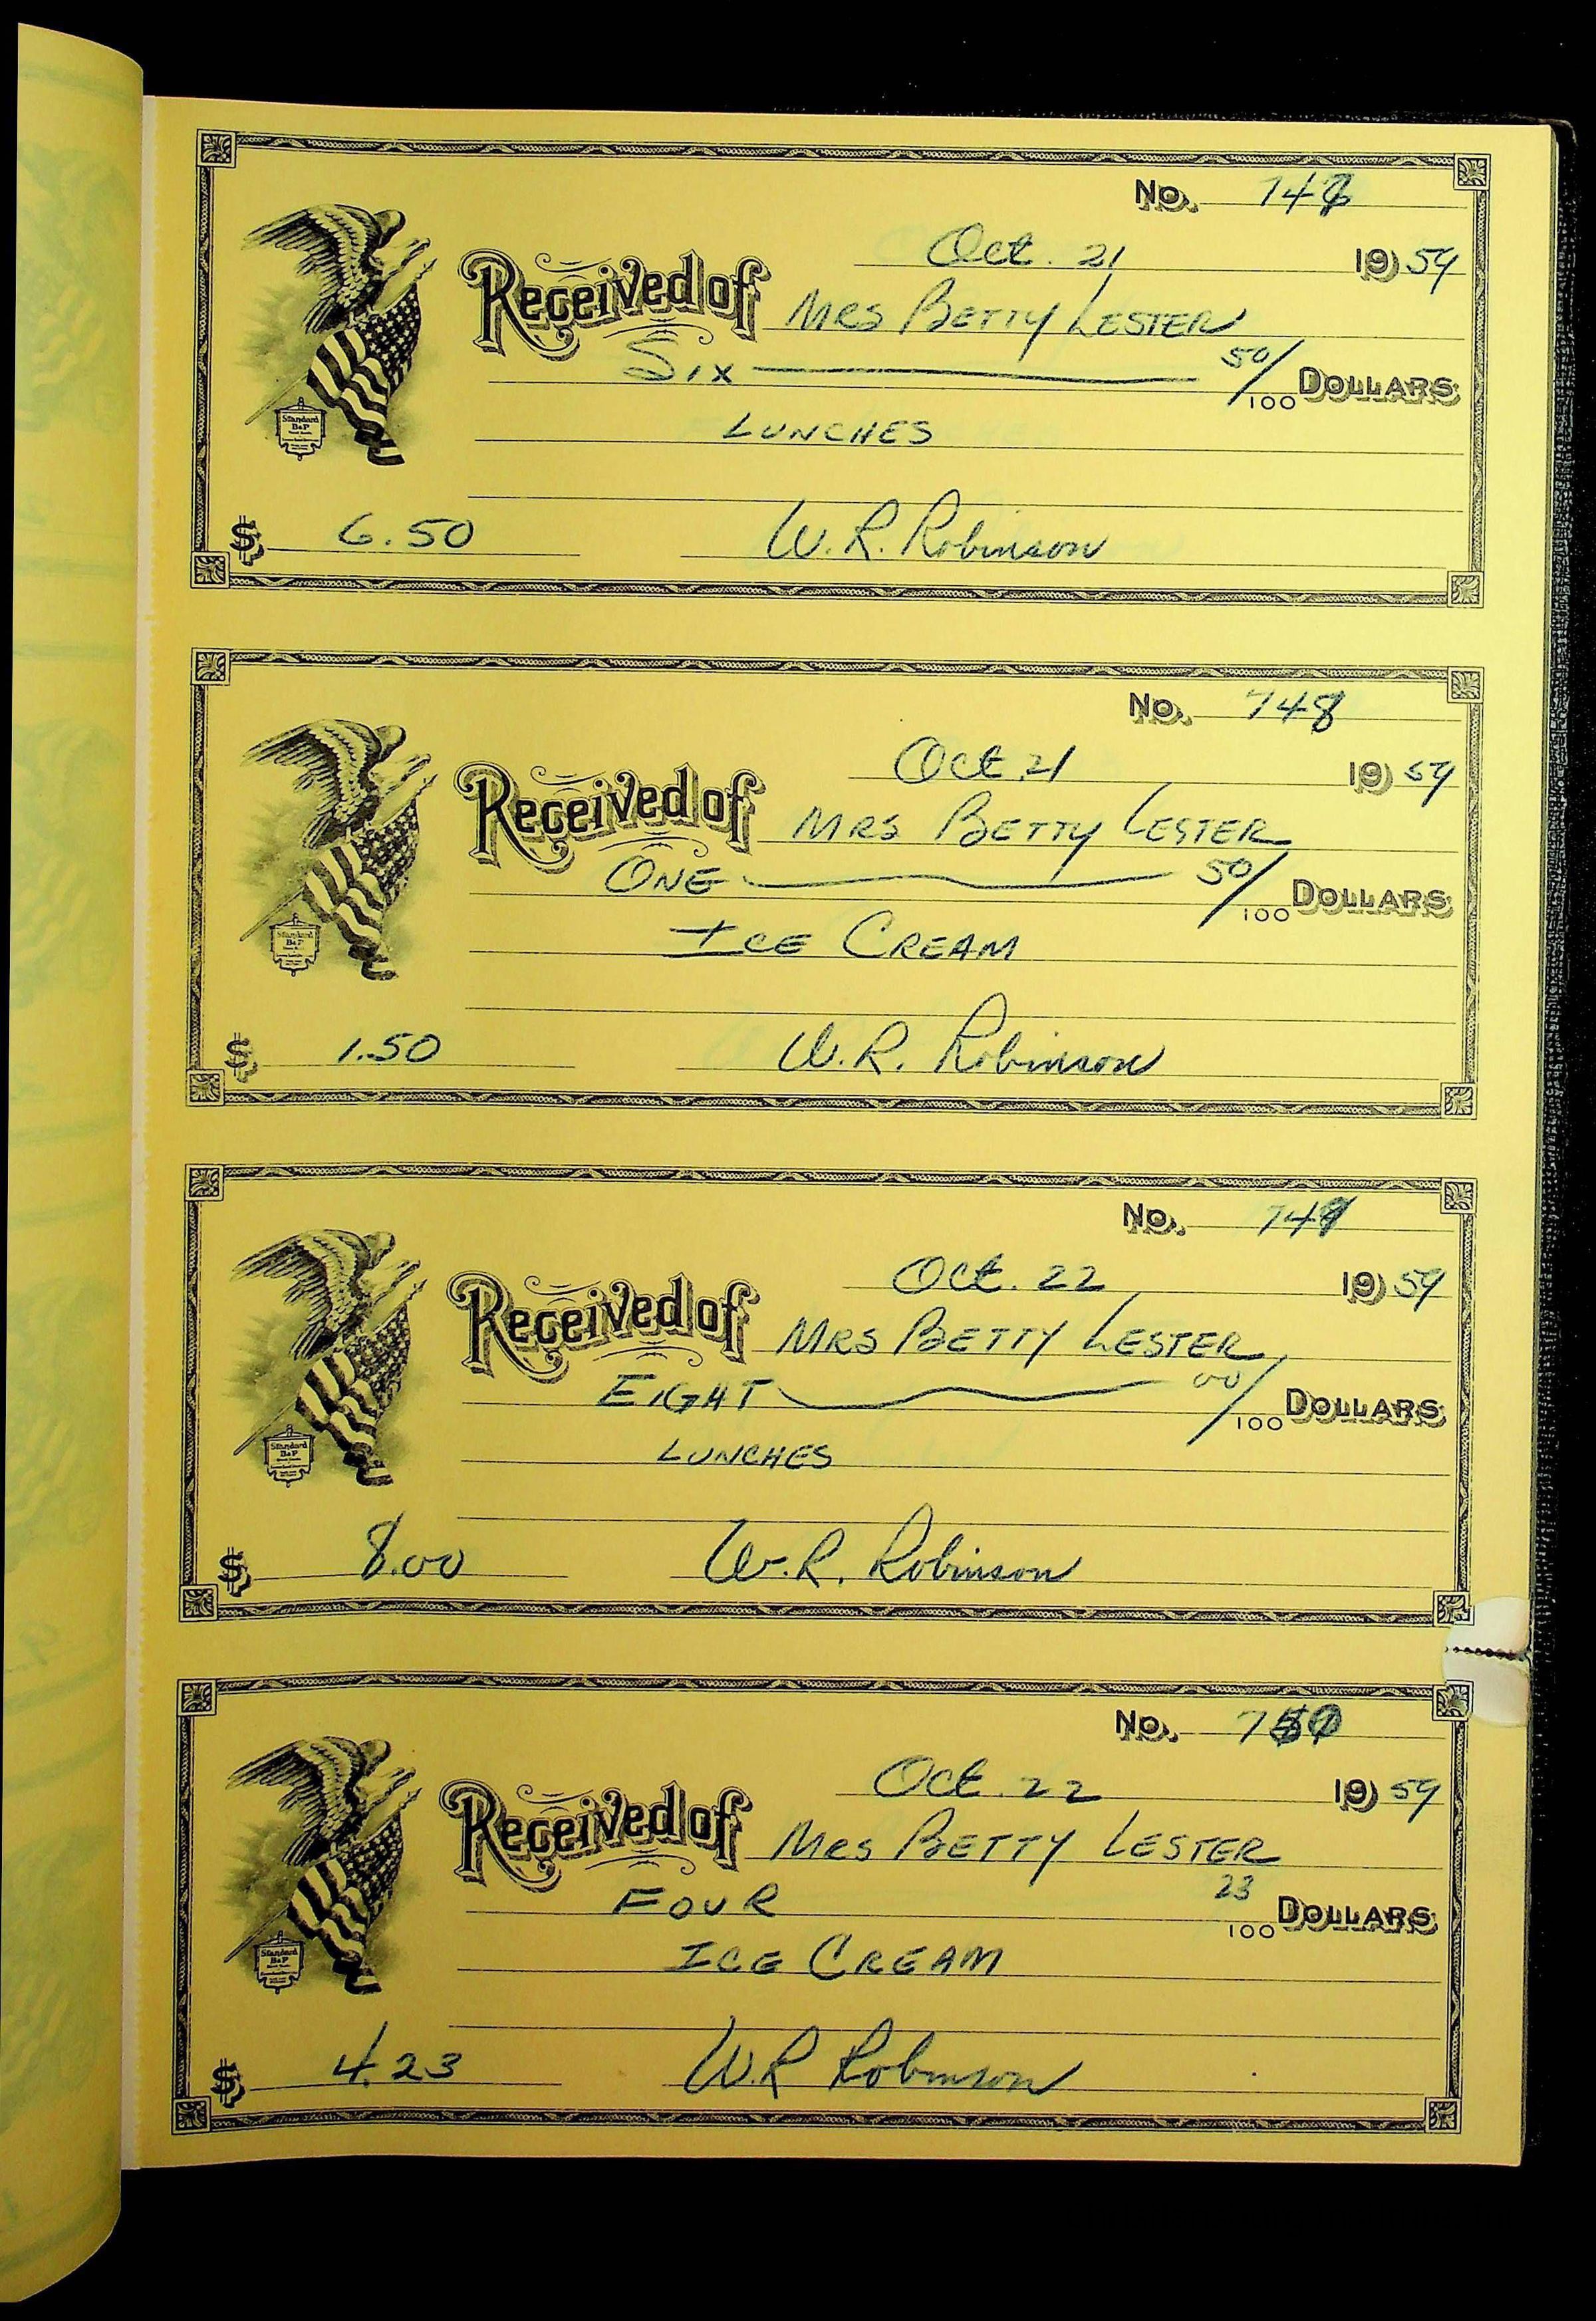 No. 747
Oct. 21 1959
Received of Mrs Betty Lester
Six 50/100 Dollars
Lunches
$ 6.50 W. R. Robinson
Standard
B&P
No. 748
Oct 21 1959
Received of Mrs Betty Lester
One 50/100 Dollars
Ice Cream
$ 1.50 W. R. Robinson
Standard
B&P
No. 749
Oct. 22 1959
Received of Mrs Betty Lester
Eight 00/100 Dollars
Lunches
$ 8.00 W. R. Robinson
Standard
B&P
No. 750
Oct. 22 1959
Received of Mrs Betty Lester
Four 23 100 Dollars
Ice Cream
$ 4.23 W. R Robinson
Standard
B&P